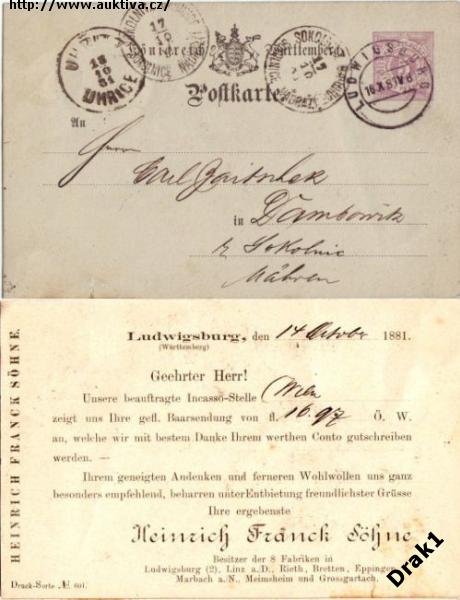 http://www.auktiva.cz/
Königreich Württemberg
LUDWIGSBURG
UHŘICE
18
10
81
17
10
SOKOLNICE
17
10
SOKOLN
Postkarte
An
Herrn
Carl
in Dambowitz
Sokolnic
Mähren
HEINRICH FRANCK SÖHNE.
Ludwigsburg, den 14 October 1881.
(Württemberg)
Geehrter Herr!
Unsere beauftragte Incasso-Stelle Wien
zeigt uns Ihre gefl. Baarsendung von fl. 16.97 Ö. W.
an, welche wir mit bestem Danke Ihrem werthen Conto gutschreiben
werden. —
Ihrem geneigten Andenken und ferneren Wohlwollen uns ganz
besonders empfehlend, beharren unter Entbietung freundlichster Grüsse
Ihre ergebenste
Heinrich Franck Söhne
Besitzer der 8 Fabriken in
Ludwigsburg (2), Linz a.D., Rieth, Bretten, Eppingen,
Marbach a./N., Meimsheim und Grossgartach.
Druck-Sorte № 601.
Drak1